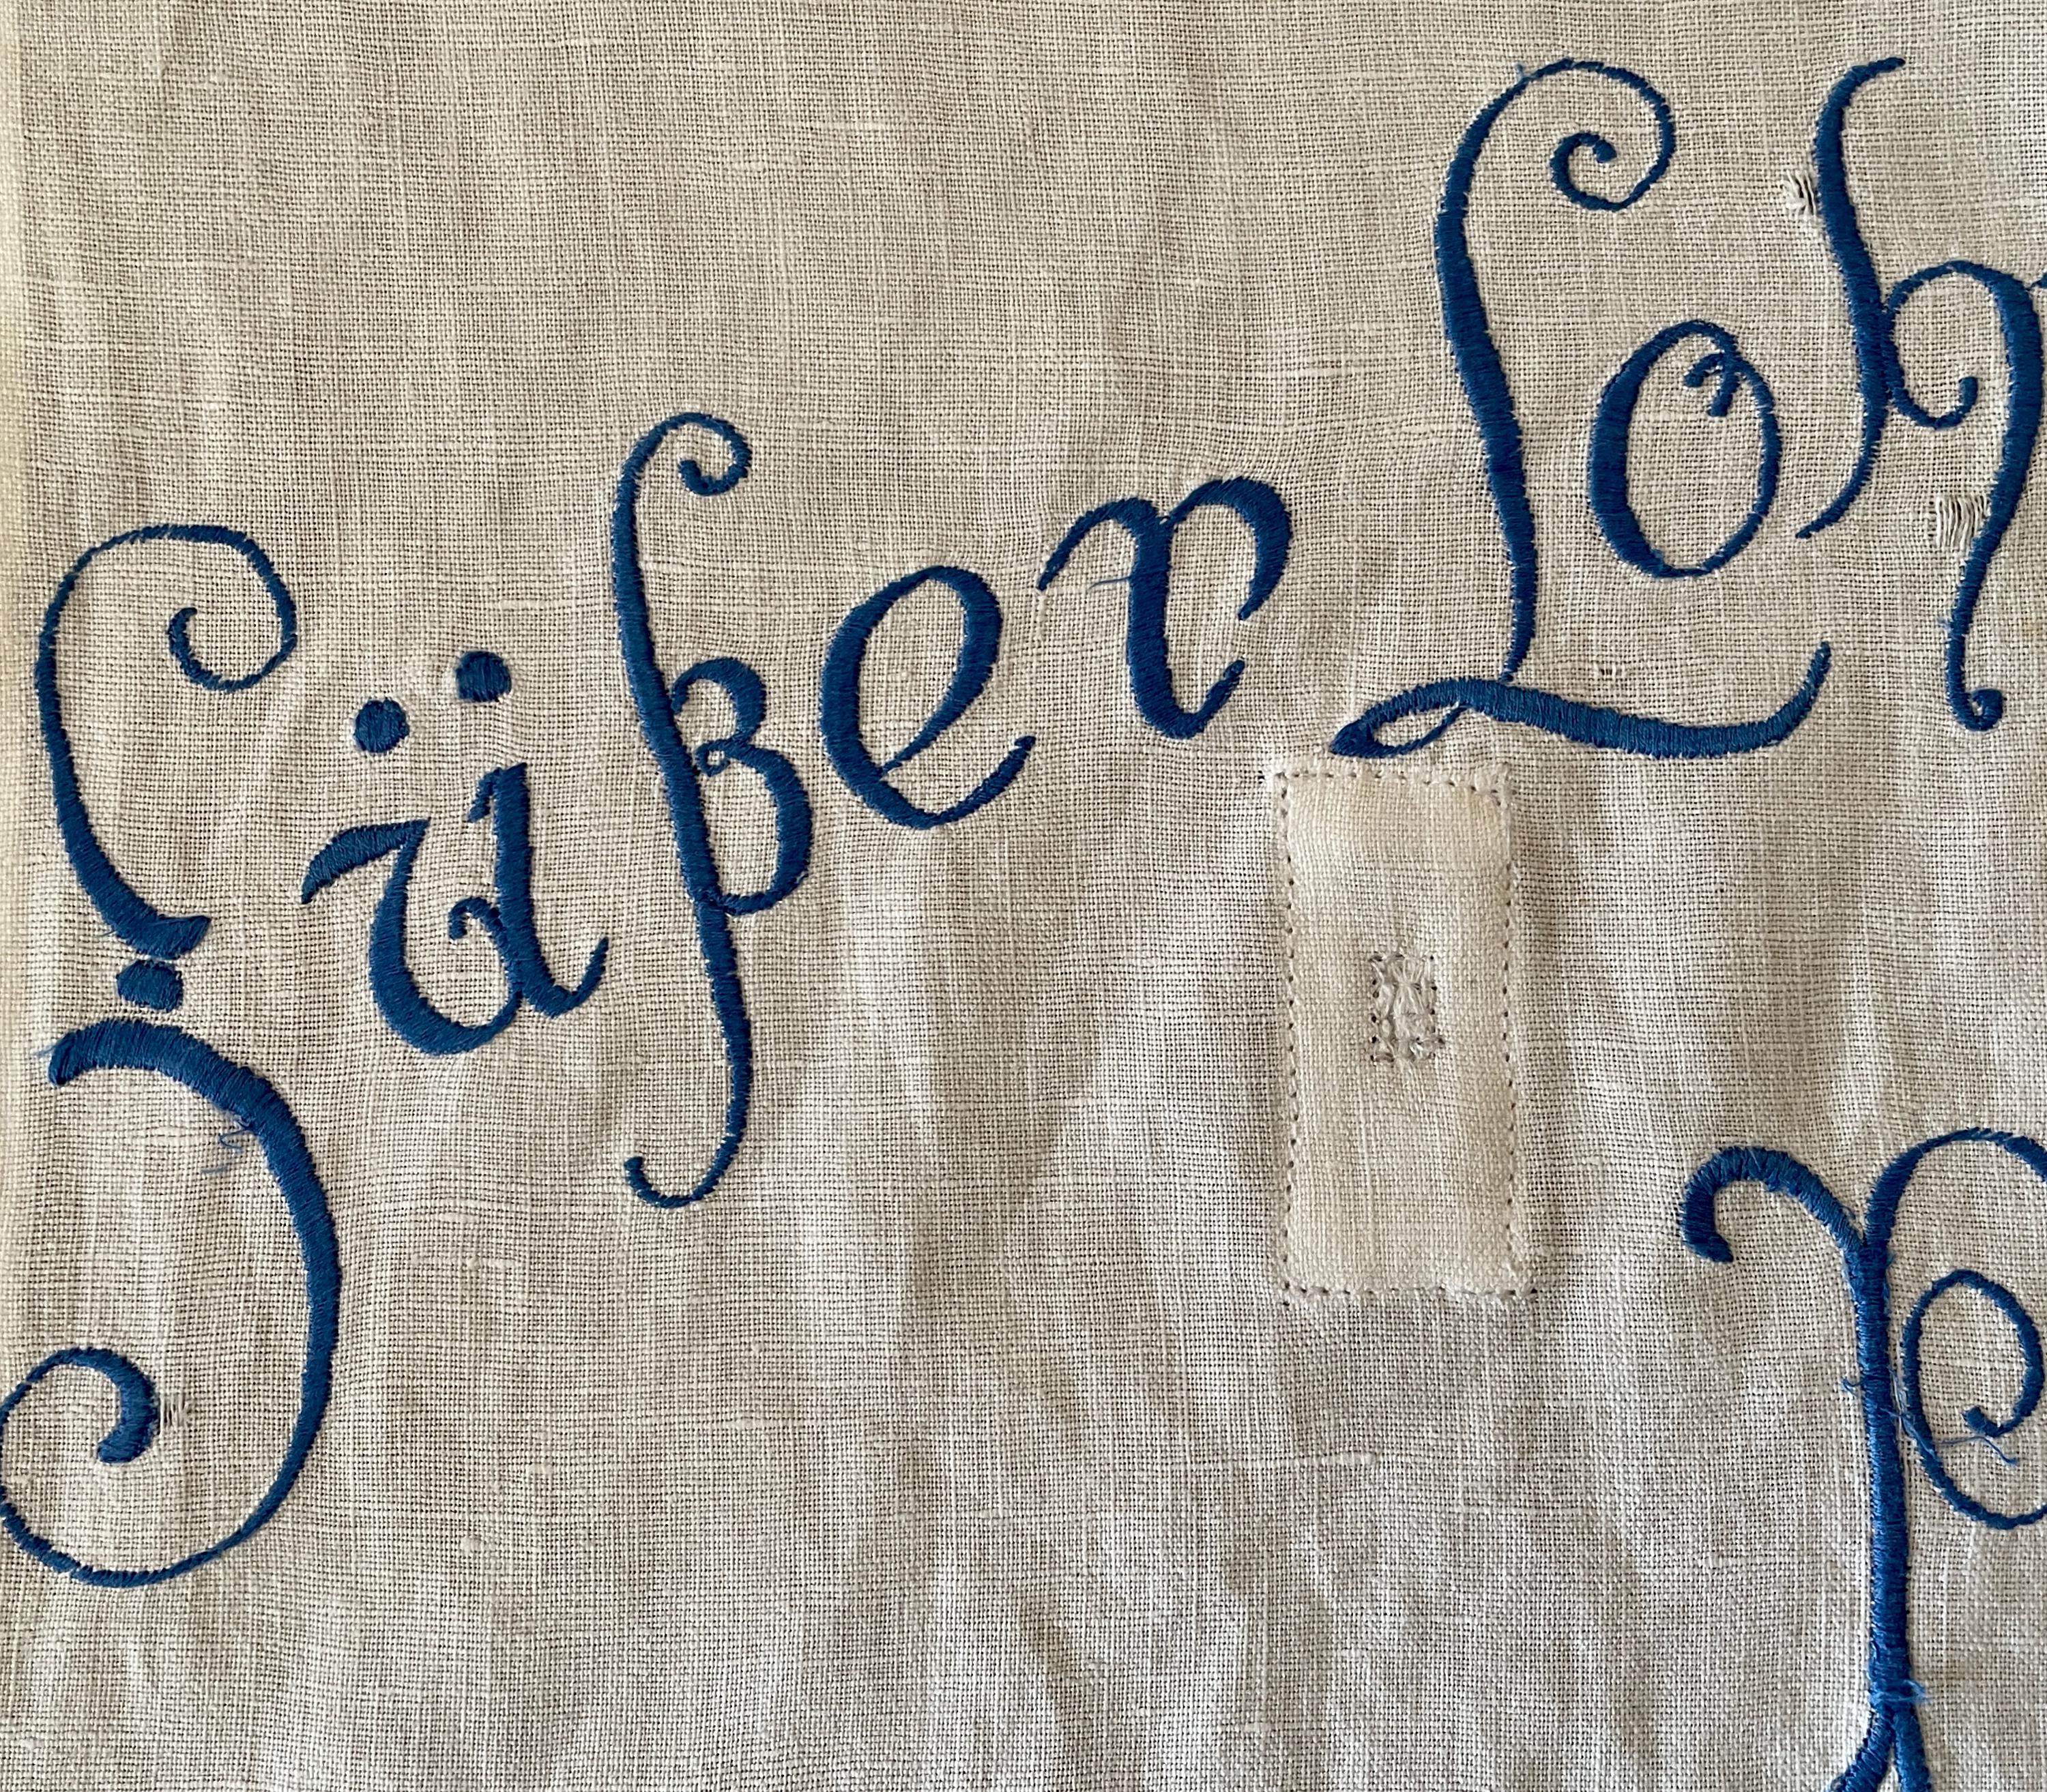 Süßer Loh